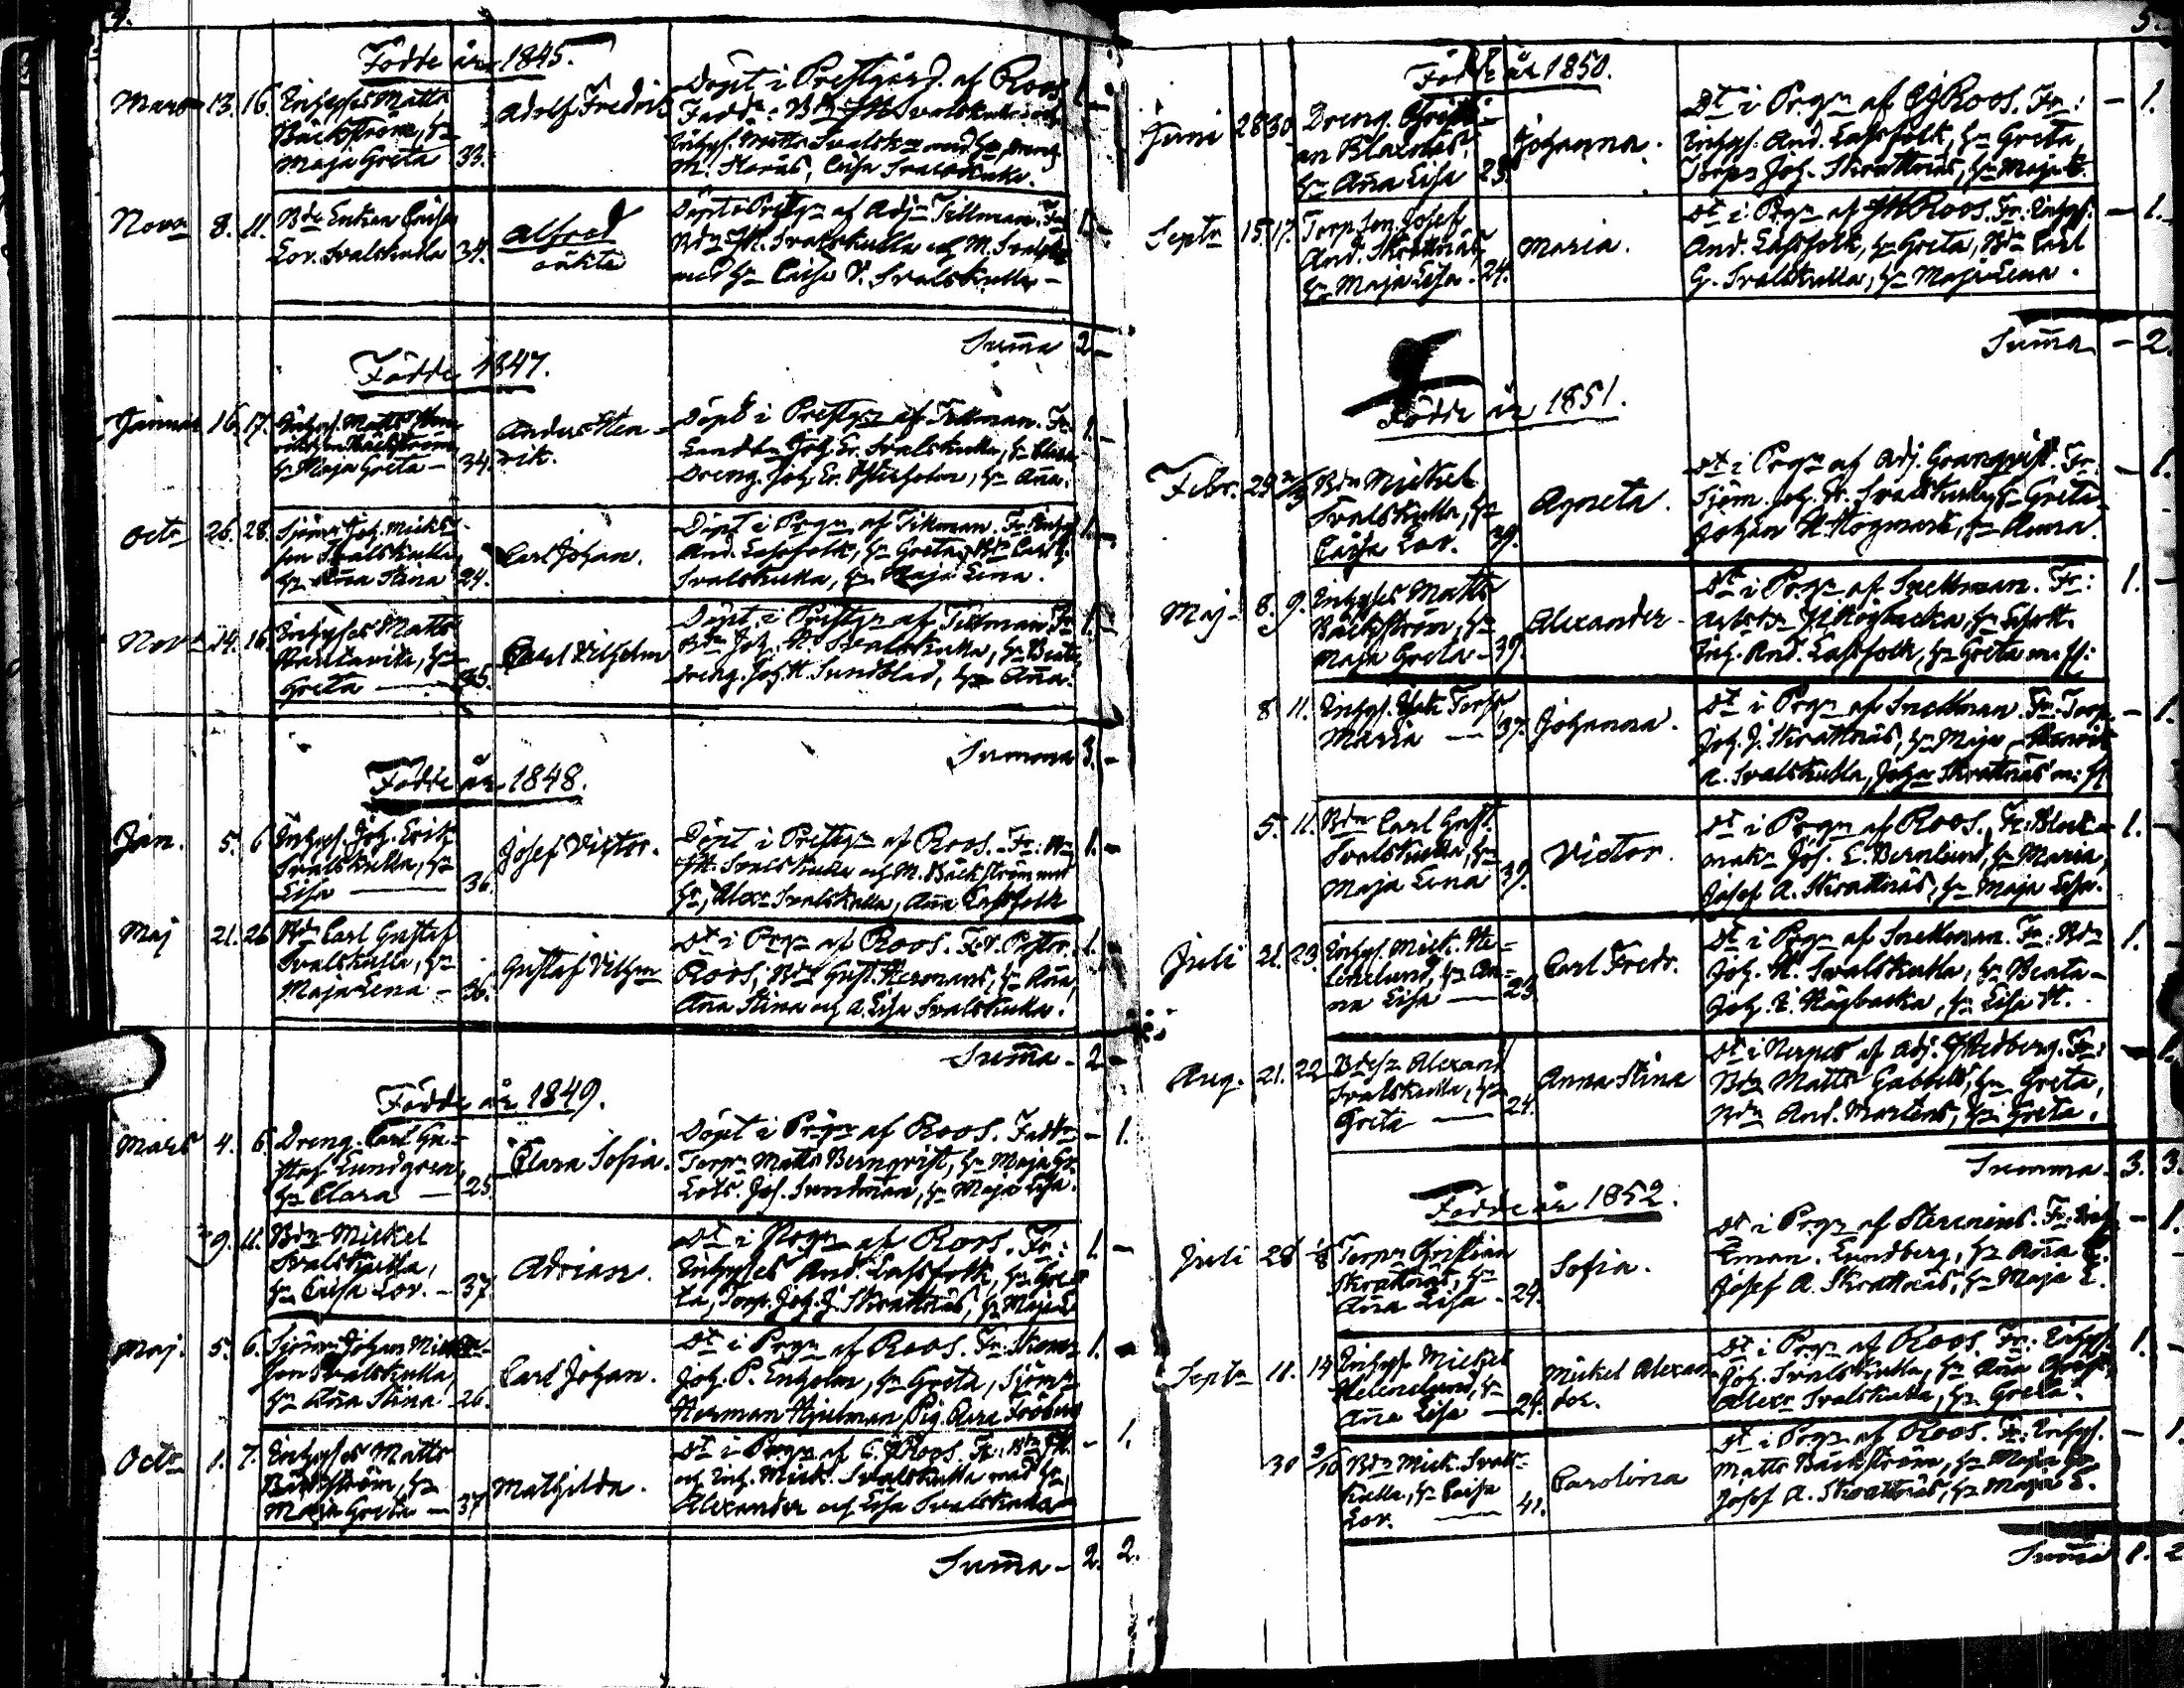 4.
Födde år 1845.
Mars 13. 16. Inhyses Matts
Bäckström, hu
Maja Greta 33.
Adolf Fredrik
Döpt i Prestgård. af Roos
M. Skräs, Caisa Svalskulla.
1. -
Novr 8. 11. Bde Enkan Caisa
Lov. Svalskulla 34.
Alfred
oäkta
Döpt i Prestgn af Adjn Tillman. Fr.
Bdn JH. Svalskulla och M. Svalsk
med hu Caisa V. Svalskulla -
1. -
Suma 2 -
Födde 1847.
Januar 16. 17. Inhyses Matts
Bäckström
hu Maja Greta - 34.
Anders Hen-
rik.
Döpt i Prestgn af Tillman. Fr.
Joh. Er. Svalskulla, hu
Dreng. Joh. Er. hu Ana.
1. -
Octr 26. 28. Sjöm. Joh. Mickels-
son Svalskulla,
hu Ana Stina 24.
Carl Johan.
Döpt i Prgn af Tillman. Fr. Inhys.
And. Lassfolk, hu Greta, Bdn Carl G.
Svalskulla, hu Maja Lena.
1. -
Novr 14. 16. Inhyses Matts
hu
Greta - 35.
Carl Vilhelm
Döpt i Prestgn af Tillman. Fr
Bdn Joh. H. Svalskulla, hu Beata
dreng. Joh. H. Sundblad, hu Ana.
1. -
Summa 3. -
Födde år 1848.
Jan. 5. 6 Inhys. Joh. Erik
Svalskulla, hu
Lisa - 36.
Josef Victor.
Döpt i Prestgn af Roos. Fr: Bdn
JH. Svalskulla och M. Bäckström med
hu, Alexr Svalskulla, Ana Lassfolk
1. -
Maj 21. 26 Bdn Carl Gustaf
Svalskulla, hu
Maja Lena - 36.
Gustaf Vilhm
Dt i Prgn af Roos. Fr V. Pastor
Roos, Bdn Gust. Hermans, hu Ana,
Ana Stina och A. Lisa Svalskulla.
1. -
Suma - 2 -
Födde år 1849.
Mars 4. 6. Dreng. Carl Gu-
staf Lundgren,
hu Clara - 25.
Clara Sofia.
Döpt i Prgn af Roos. Faddr
Torpr Matts Bernqvist, hu Maja Gr.
Lots. Joh. Sundman, hu Maja Lisa.
- 1.
9. 11. Bdn Mickel
Svalskulla,
hu Caisa Lov. - 37.
Adrian.
Dt i Prgn af Roos. Fr:
Inhyses And. Lassfolk, hu Gre-
ta, Torp. Joh. J. Skrattnäs, hu Maja L
1. -
Maj. 5. 6. Sjöm. Johan Mickels-
son Svalskulla,
hu Ana Stina 26.
Carl Johan.
Dt i Prgn af Roos. Fr: Skom.
Joh. P. Enholm, hu Greta, Sjöm.
Herman Hjulman, Pig. Clara Fröberg
1. -
Octr 1. 7. Inhyses Matts
Bäckström, hu
Maja Greta - 37
Mathilda.
Dt i Prgn af C. J. Roos. Fr: Bdn JH.
och Inh. Mick. Svalskulla med hu,
Alexander och Lisa Svalskulla
- 1.
Suma - 2. 2.
5.
Födde år 1850.
Juni 28 30 Dreng. Christi-
an
hu Ana Lisa 23.
Johanna.
Dt i Prgn af CJ Roos. Fr:
Inhys. And. Lassfolk, hu Greta,
Torpr Joh. Skrattnäs, hu Maja
- 1.
Septr 15. 17. Torp. son Josef
And. Skrattnäs,
hu Maja Lisa. 24.
Maria.
Dt i Prgn af Roos. Fr: Inhys.
And. Lassfolk, hu Greta, Bdn Carl
G. Svalskulla, hu Maja Lena.
- 1.
Suma - 2.
Födde år 1851.
Febr. 29 2/3 Bdn Mickel
Svalskulla, hu
Caisa Lov. 39.
Agneta.
Dt i Prgn af Adj. Granqvist. Fr.
Sjöm. Joh. H. Svalskulla, hu Greta
Johan H. Högmark, hu Anna.
- 1.
Maj 8. 9. Inhyses Matts
Bäckström, hu
Maja Greta - 39.
Alexander
Dt i Prgn af Snellman. Fr:
Högbacka, hu
Inh. And. Lassfolk, hu Greta m. fl:
1. -
8 11. Inhys.
Maria - 37.
Johanna.
Dt i Prgn af Snellman. Fr. Torp.
Joh. J. Skrattnäs, hu Maja
A. Svalskulla, Johan Skrattnäs m: fl.
- 1.
5. 11. Bdn Carl Gust.
Svalskulla, hu
Maja Lena 39.
Victor.
Dt i Prgn af Roos. Fr:
Joh. E. Bernlund, hu Maria,
Josef A. Skrattnäs, hu Maja Lisa.
1. -
Juli 21. 23. Inhys. Mick. He-
lenelund, hu An-
na Lisa - 23
Carl Fredr.
Dt i Prgn af Snellman. Fr: Bdn
Joh. H. Svalskulla, hu Beata -
Joh. E. Högbacka, hu Lisa H.
1. -
Aug. 21. 22 Alexand
Svalskulla, hu
Greta - 24.
Anna Stina
Dt i Nerpes af Adj. Hedberg. Fr:
Bdn Matts Gabbels, hu Greta,
Bdn And. Martens, hu Greta.
- 1.
Summa - 3. 3.
Födde år 1852.
Juli 28 1/8 Torpr Christian
Skrattnäs, hu
Ana Lisa - 24.
Sofia.
Dt i Prgn af
Eman. Lundberg, hu Ana
Josef A. Skrattnäs, hu Maja L.
- 1.
Septr 11. 14 Inhys. Mickel
Helenelund, hu
Ana Lisa - 24.
Mickel Alexan-
der.
Dt i Prgn af Roos. Fr: Inhys.
Joh. Svalskulla, hu Ana
Alexr Svalskulla, hu Greta.
1. -
30 3/10 Bdn Mick. Sval-
kulla, hu Caisa
Lov. - 41.
Carolina
Dt i Prgn af Roos. Fr: Inhys.
Matts Bäckström, hu Maja Gr.
Josef A. Skrattnäs, hu Maja L.
- 1
Suma 1. 2